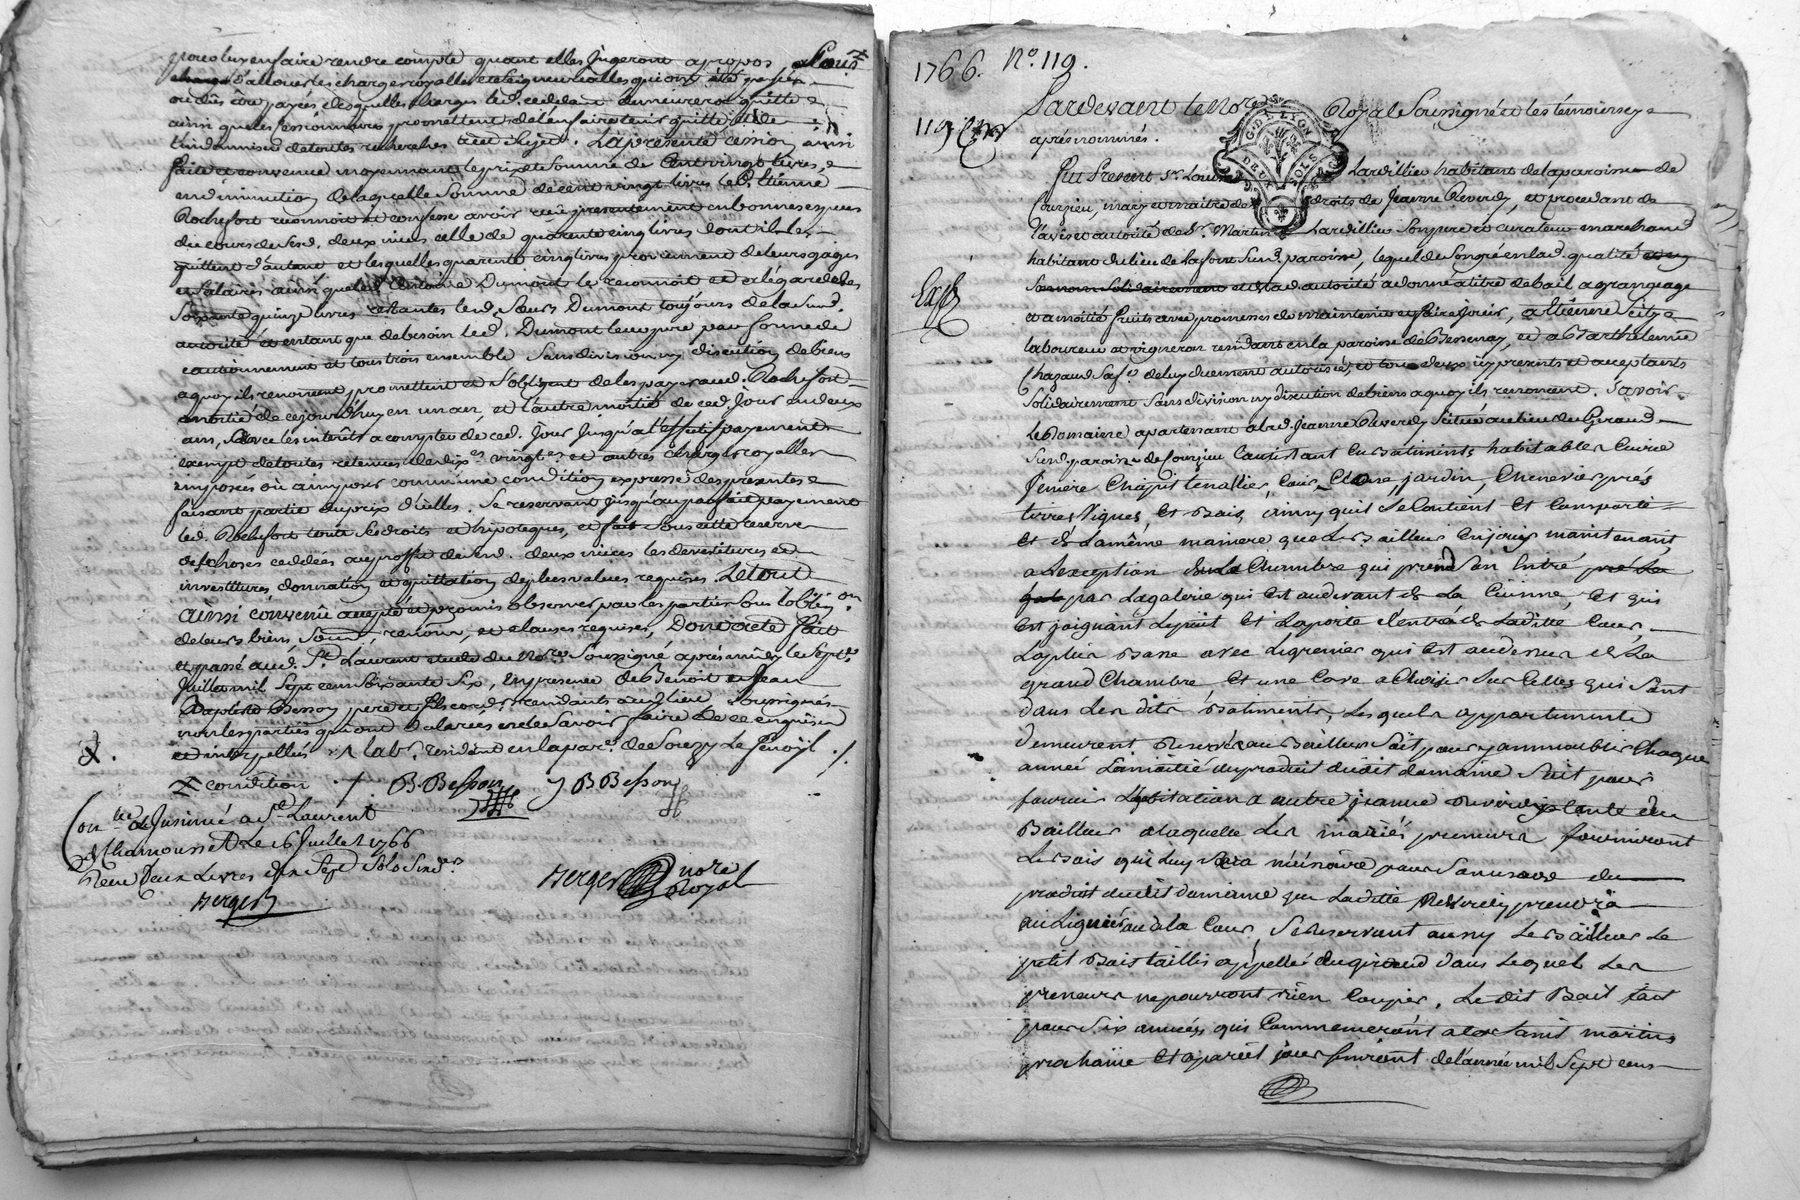 pour luy en faire rendre compte quant elles Jugeront apropos
d'allouer les charges royalles et seigneurialles qui ont été
ou dûs être payés desquelles charges led. ceddant demeurera quitte
ainsi que les cessionnaires promettent de l'en faire tenir quitte et de
l'indemniser de toutes recherches a ce sujet. La presente cession ainsi
faite et convenue moyennant le prix et somme de Cent vingt livres,
en diminution de laquelle somme de cent vingt livres led. Etienne
Rochefort reconnoit et confesse avoir reçû presentement en bonnes especes
du cours desd. deux nieces celle de quarente cinq livres dont il les
quittent d'autant et lesquelles quarente cinq livres proviennent de leurs gages
et salaires ainsi que led. Antoine Dumont le reconnoit et a l'égard des
Soixante quinze livres restantes lesd. Sœurs Dumont toujours de la susd.
autorité et entant que de besoin led. Dumont leur pere par forme de
cautionnement et tous trois ensemble Sans division ny discution de biens
a quoy ils renoncent promettent et S'obligent de les payer aud. Rochefort
moitié de cejourd'huy en un an, et l'autre moitié de ced. Jour en deux
ans, avec les interêts a compter de ced. Jour Jusqu'a l'effectif payement
exempt de toutes retenues de dix.es vingt.es et autres charges royalles
imposés ou a imposer comme une condition expresse des presentes
faisant partie du prix d'icelles. Se reservant Jusqu'au parfait payement
led. Rochefort toute Ses droits et hipoteques, et Sous cette reserve
des choses ceddées au proffit desd. deux nieces les devestitures et
investitures donnation et quittation de plus values requises. Le tout
ainsi convenu accepté et promis observer par les parties Sous l'oblig.on
de leurs biens, Soum. renonc. et clauses requises, Dont acte fait
et passé aud. St. Laurent etude du No.re Soussigné après midy le Sept.e
Juillet mil Sept cens Soixante Six, En presence de Benoit et Jean
Baptiste Besson pere et fils residants aud. lieu soussignés
non les parties qui ont declarées ne le Savoir faire de ce enquises
et interpellés ⁊ lab.r residant en la par.e de Souzy Le Jenoÿl ./.
X. condition ./. B. Besson J B Besson
Con.llé et Insinué a St. Laurent
de Chamousset Le 16 Juillet 1766
Reçu Deux Livres dix Sept Sols Six d.ers
Berger
Berger notre Royal
1766. No. 119.
119
Pardevant le No.re Royal Soussigné et les témoins cy
après nommés.
Fut Present Sr. Louis Lardillier habitant de la paroisse de
Courzieu, mary et maitre des droits de Jeanne Reverdy, et procedant de
l'avis et autorité de Sr. Martin Lardillier Son pere et curateur marchand
habitant du lieu de Lafont Susd. paroisse, lequel de Son gré en lad. qualité
et de lad. autorité a donné a titre de bail a grangeage
et a moitié fruits avec promesse de maintenir et faire joüir, a Etienne
laboureur et vigneron residant en la paroisse de Bessenay, et a Barthelemie
Chazaud Sa f.e de luy duement autorisée, et tous deux icy presents et acceptants
Solidairement Sans division ny discution de biens a quoy ils renoncent. Savoir
Le Domaine apartenant a lad. Jeanne Reverdy Scitué au lieu du Giraud
Susd. paroisse de Courzieu Consistant En batiments habitables Cuvier
feniere Chapit tenallier, Cour, Clone jardin, Cheneviers prés
terres Vignes, Et Bois, ainsy quil Se Contient Et Comporte
Et de La même maniere que Les Bailleur En jouis maintenant
a Lexception de la Chambre qui prend Son Entré
par La galerie qui Est audevant de La Cuisine, Et qui
Est joignant Le puit Et La porte d'entré de Laditte Cour,
La plus Basse avec Le grenier qui Est au dessus de La
grand Chambre Et une Cave a Choisir Sur Celles qui Sont
dans Les dits Batiments, Lesquels appartements
demeurent Reservés au Bailleur Soit pour y ammoubler Chaque
année La moitié du produit dudit domaine Soit pour
fournir Lhabitation a autre jeanne Reverdy tante du
Bailleur a laquelle Les mariés preneurs fourniront
Le Bois qui Luy Sera nécésaire pour Son usage du
produit dudit domaine que Laditte Reverdy prendra
au Ligniér de la Cour, Se Reservant aussy Le Bailleur Le
petit Bois taillis appellé du giraud dans Lequel Les
preneurs ne pourront rien Couper. Le dit Bail fait
pour Six années qui Commenceront a la Saint martin
prochaine Et a pareil jour finiront de l'année mil Sept cens